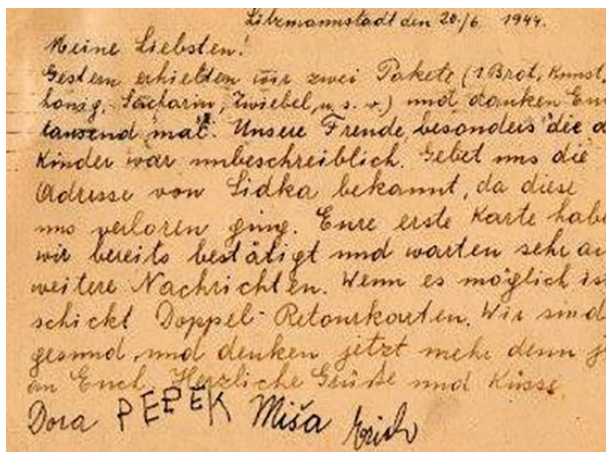 Litzmannstadt den 20./6. 1944.
Meine Liebsten!
Gestern erhielten wir zwei Pakete (1 Brot, Kunst
honig, Sacharin, Zwiebel, u. s. v.) und danken Euch
tausend mal. Unsere Freude, besonders die d
Kinder war unbeschreiblich. Gebet uns die
Adresse von Lidka bekannt, da diese
uns verloren ging. Eure erste Karte habe
wir bereits bestätigt und warten sehr au
weitere Nachrichten. Wenn es möglich is
schickt Doppel-Retourkarten. Wir sind
gesund, und denken jetzt mehr denn j
an Euch. Herzliche Grüße und Küsse
Dora PEPEK Miša Erich